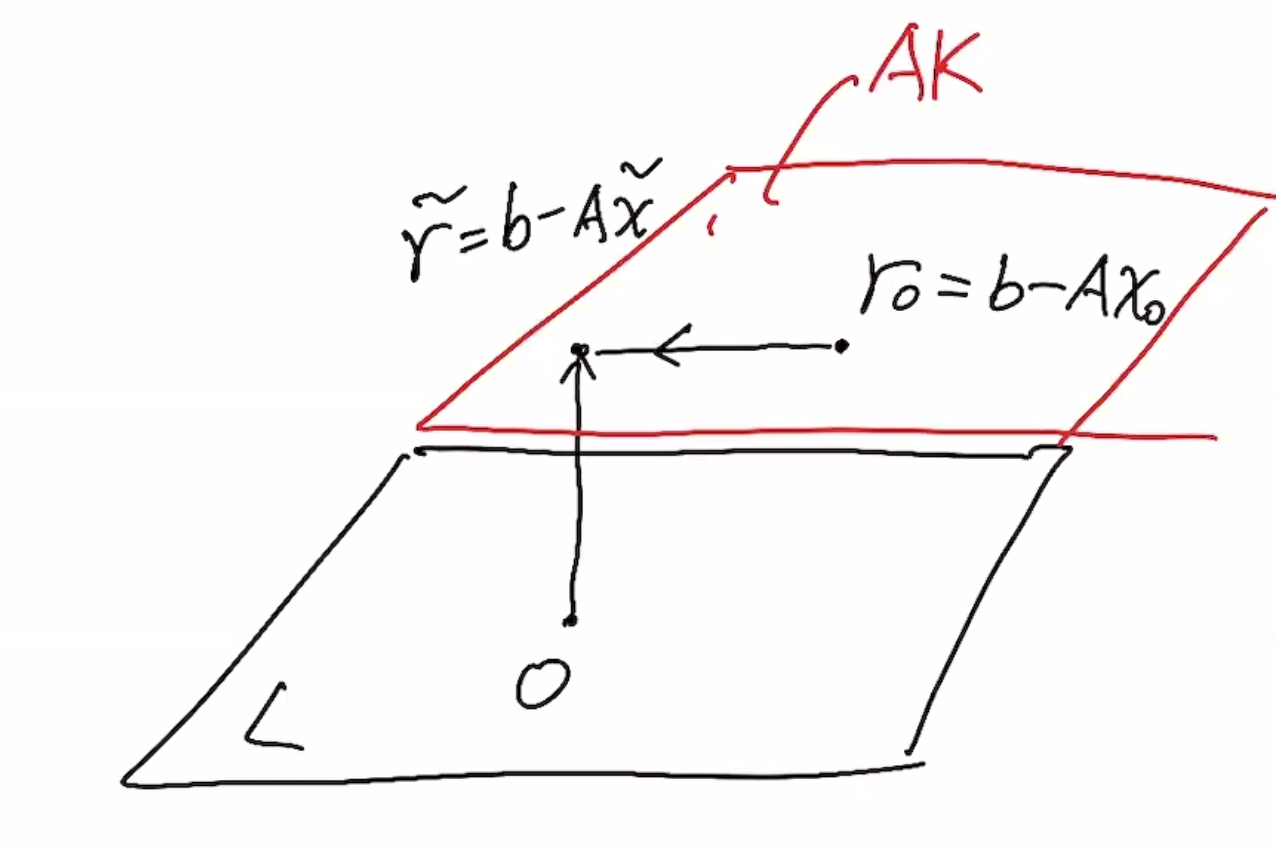 AK
r̃ = b - Ax̃
r₀ = b - Ax₀
O
L